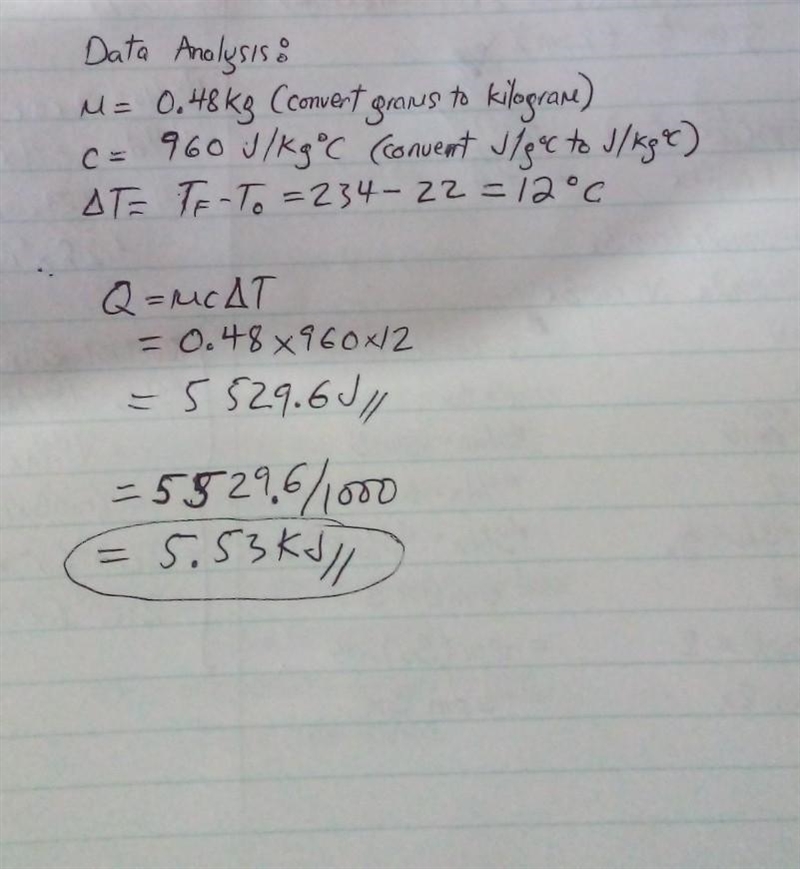 Data Analysis:
M = 0.48kg (convert grams to kilogram)
C = 960 J/kg°C (convert J/g°C to J/kg°C)
ΔT = TF - To = 234 - 22 = 12°C
∴
Q = MCΔT
= 0.48 × 960 × 12
= 5 529.6J//
= 5529.6/1000
= 5.53KJ//